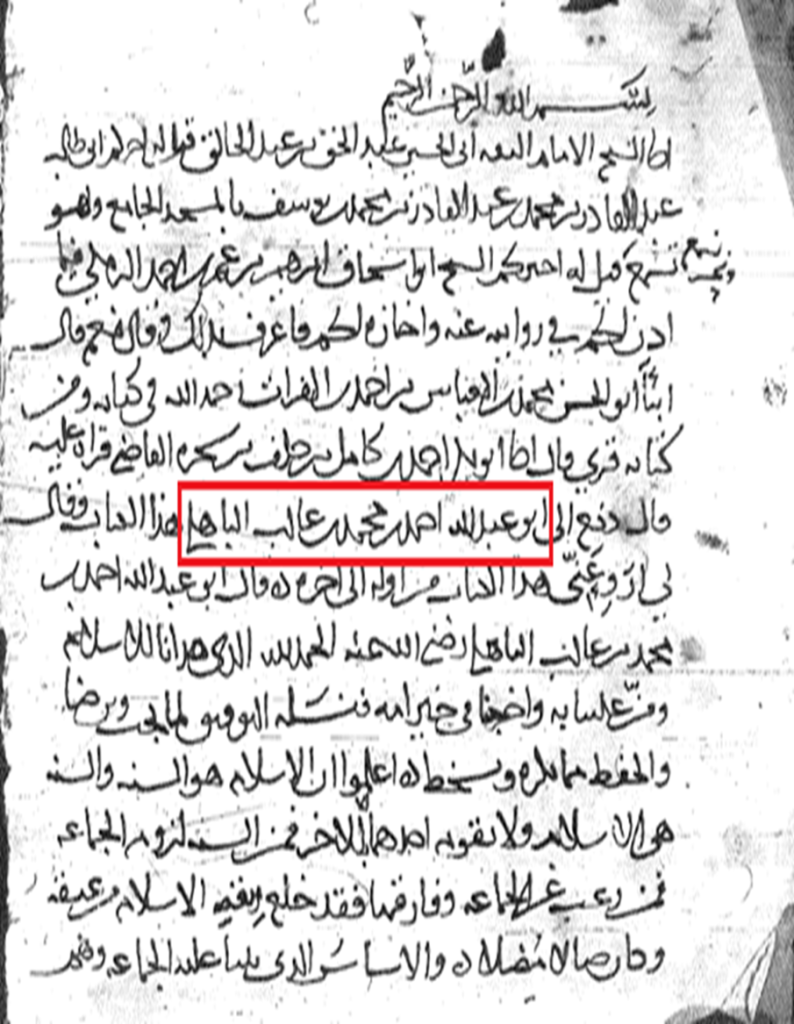 بسم الله الرحمن الرحيم
انا الشيخ الامام الفقه ابى الحسين عبد الحق بن عبد الخالق قيل له اخبركم ابو طالب
عبد القادر بن محمد بن عبد القادر بن محمد بن يوسف بالمسجد الجامع وهو
يسمع قيل له اخبركم الشيخ ابو اسحاق ابرهيم بن عمر بن احمد البرمكي فيما
اذن لكم في روايته عنه واجازه لكم فاعرف بذلك وقال نعم قال
انبأ ابو الحسن محمد بن العباس بن احمد بن الفرات رحمه الله في كتابه ومن
كتابه قرى قال انا ابو بكر احمد بن كامل بن خلف بن شجره القاضي قراه عليه
قال دفع الى ابو عبد الله احمد بن محمد بن غالب الباهلي هذا الكتاب وقال
لى اروِ عَنِّى هذا الكتاب من اوله الى اخره ه قال ابو عبد الله احمد بن
محمد بن غالب الباهلي رضي الله عنه الحمد لله الذى هدانا للاسلام
ومنّ علينا به واخرجنا في خير امه فنسله التوفيق لما يحب ويرضا
والحفظ مما يكره ويسخط ه اعلموا ان الاسلام هو السنه والسنه
هى الاسلام ولا يقوم احدهما الا بالاخر فمن السنه لزوم الجماعه
فمن رغب غير الجماعه وفارقها فقد خلع ربقه الاسلام من عنقه
وكان ضالا مضلا ه والاساس الذى بنينا عليه الجماعه وهم